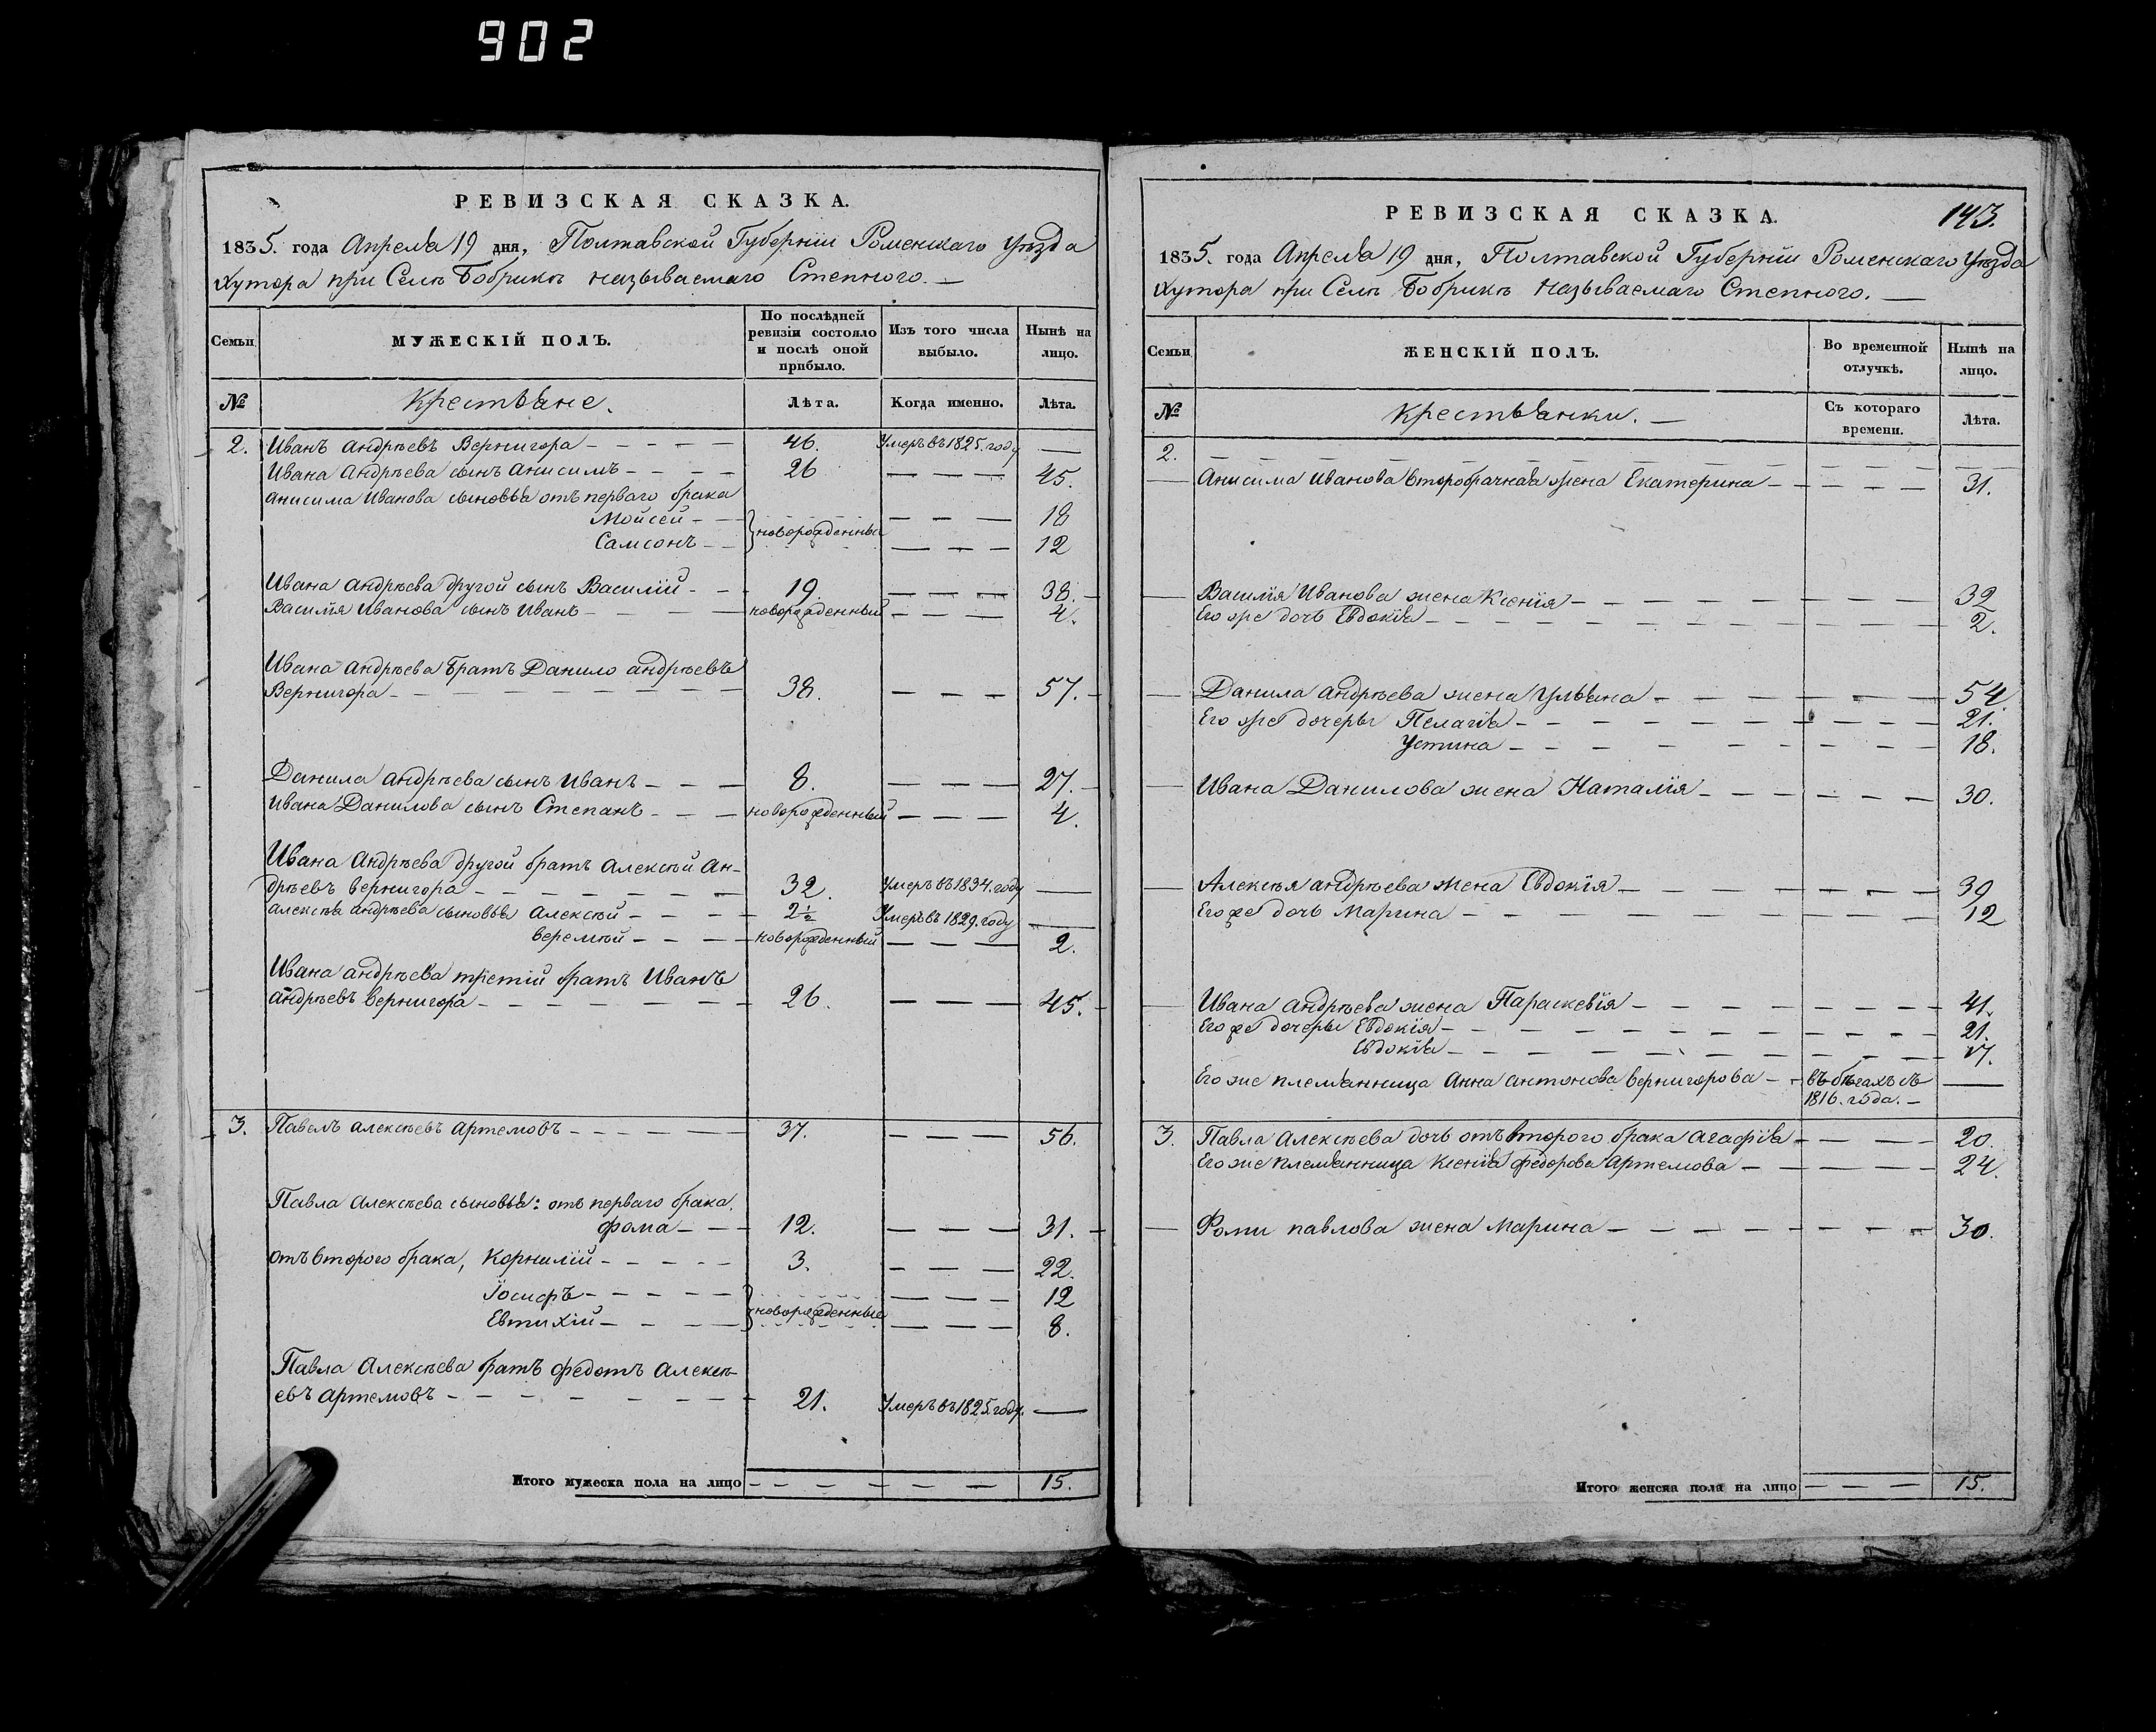 902
РЕВИЗСКАЯ СКАЗКА.
1835. года Апреля 19 дня, Полтавской Губерніи Роменскаго Уѣзда
Хутора при Селѣ Бобрикѣ называемаго Степного. —
Семьи
МУЖЕСКІЙ ПОЛЪ.
По послѣдней ревизіи состояло и послѣ оной прибыло.
Изъ того числа выбыло.
Нынѣ на лицо.
№ Крестьяне. Лѣта. Когда именно. Лѣта.
2. Иванъ Андрѣевъ Вернигора 46. Умеръ въ 1825. году —
Ивана Андрѣева сынъ Анисимъ 26 45.
Анисима Иванова сыновья отъ перваго брака
Мойсей 18
новорожденные
Самсонъ 12
Ивана Андрѣева другой сынъ Василій 19. 38.
Василія Иванова сынъ Иванъ новорожденный 4.
Ивана Андрѣева братъ Данило андрѣевъ
Вернигора 38. 57.
Данила андрѣева сынъ Иванъ 8. 27.
Ивана Данилова сынъ Степанъ новорожденный 4.
Ивана Андрѣева другой братъ Алексѣй Ан-
дрѣевъ вернигора 32. Умеръ въ 1834. году —
алексѣя андрѣева сыновья Алексѣй 2½ Умеръ въ 1829. году —
веремѣй новорожденный 2.
Ивана андрѣева третій братъ Иванъ
андрѣевъ вернигора 26. 45.
3. Павелъ алексѣевъ Артемовъ 37. 56.
Павла Алексѣева сыновья: отъ перваго брака.
Фома 12. 31.
отъ второго брака, Корнилій 3. 22.
Іосифъ 12
новорожденные
Евтихій 8.
Павла Алексѣева братъ Федотъ Алексѣ-
евъ Артемовъ 21. Умеръ въ 1825. году. —
Итого мужеска пола на лицо 15.
143.
РЕВИЗСКАЯ СКАЗКА.
1835. года Апреля 19 дня, Полтавской Губерніи Роменскаго Уѣзда
Хутора при Селѣ Бобрикѣ Называемаго Степного. —
Семьи
ЖЕНСКІЙ ПОЛЪ.
Во временной отлучкѣ.
Нынѣ на лицо.
№ Крестьянки. — Съ котораго времени. Лѣта.
2.
Анисима Иванова второбрачная жена Екатерина 31.
Василія Иванова жена Ксенія 32
Его же дочь Евдокія 2.
Данила андрѣева жена Ульяна 54.
Его же дочеры Пелагія 21.
Устина 18.
Ивана Данилова жена Наталія 30.
Алексѣя андрѣева жена Евдокія 39
Его же дочь Марина 12
Ивана андрѣева жена Параскевія 41.
Его же дочеры Евдокія 21.
Евдокія 17.
Его же племянница Анна антонова вернигорова въ бѣгахъ съ —
1816. года. —
3. Павла Алексѣева дочь отъ второго брака агафія 20.
Его же племянница Ксенія Федорова Артемова 24.
Фомы павлова жена Марина 30.
Итого женска пола на лицо 15.